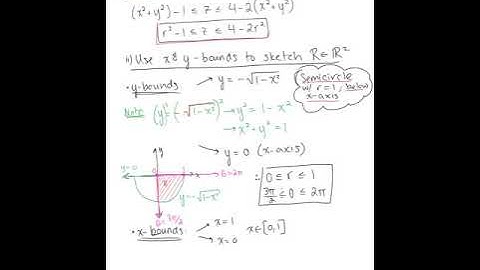 (x²+y²)-1 ≤ 7 ≤ 4-2(x²+y²)
r²-1 ≤ 7 ≤ 4-2r²
ii) Use x & y-bounds to sketch R∈ℝ²
• y-bounds
y = -√1-x²
Semicircle
w/ r=1, below
x-axis
Note: (y)² = (-√1-x²)² → y² = 1-x²
→ x²+y² = 1
y = 0 (x-axis)
y
y=0
0
1
x
θ=2π
y=-√1-x²
θ=3π/2
∴ 0 ≤ r ≤ 1
3π/2 ≤ θ ≤ 2π
• x-bounds
x=1
x=0
x∈[0,1]